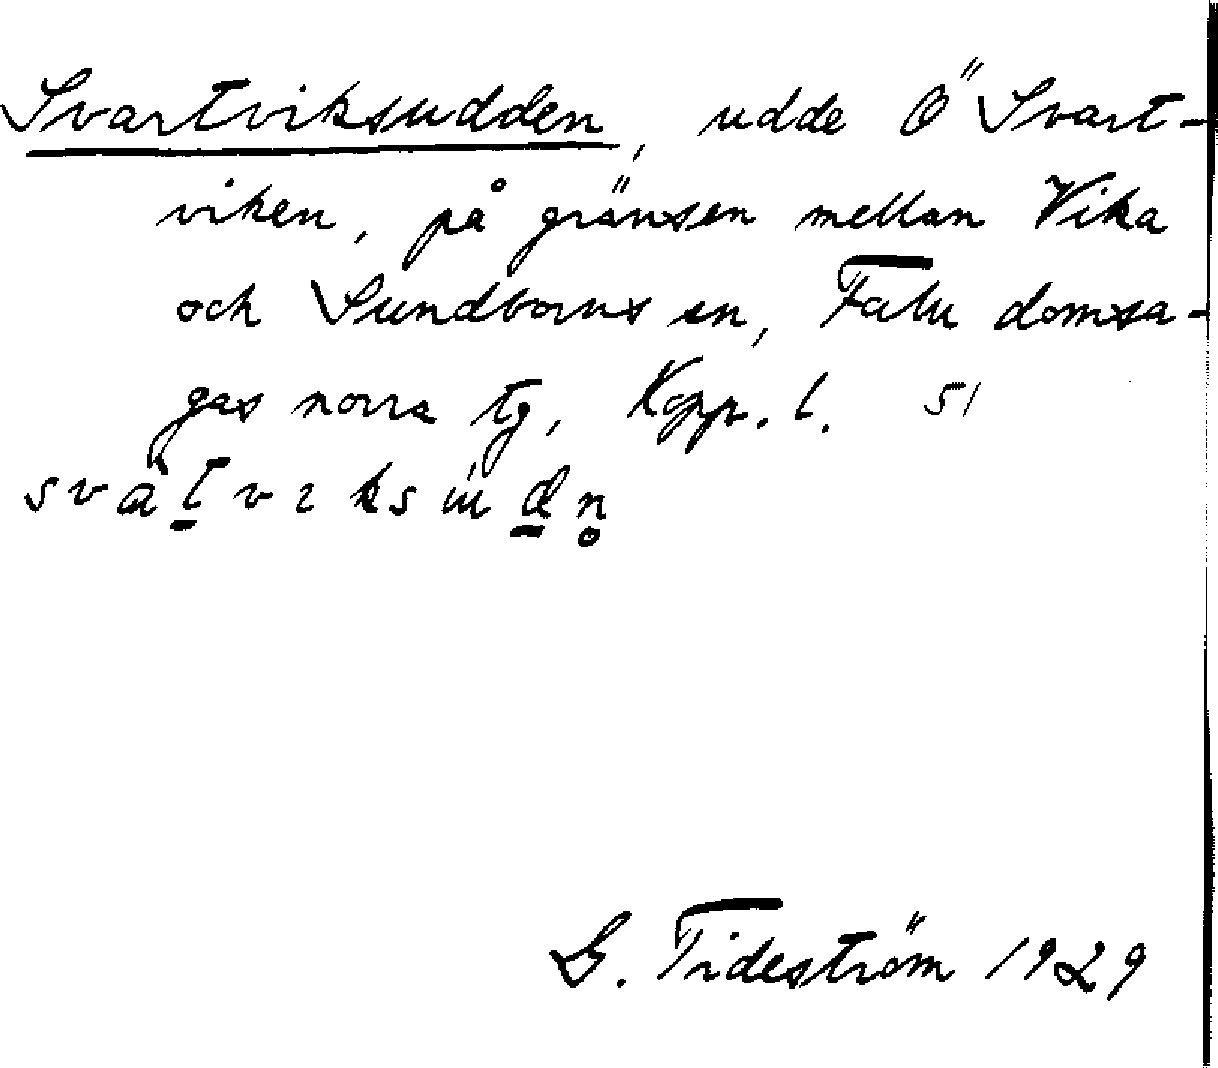 Svartviksudden, udde Ö Svart-
viken, på gränsen mellan Vika
och Sundborns sn, Falu domsa-
gas norra tg, Kopp. l. 51
G. Tideström 1929